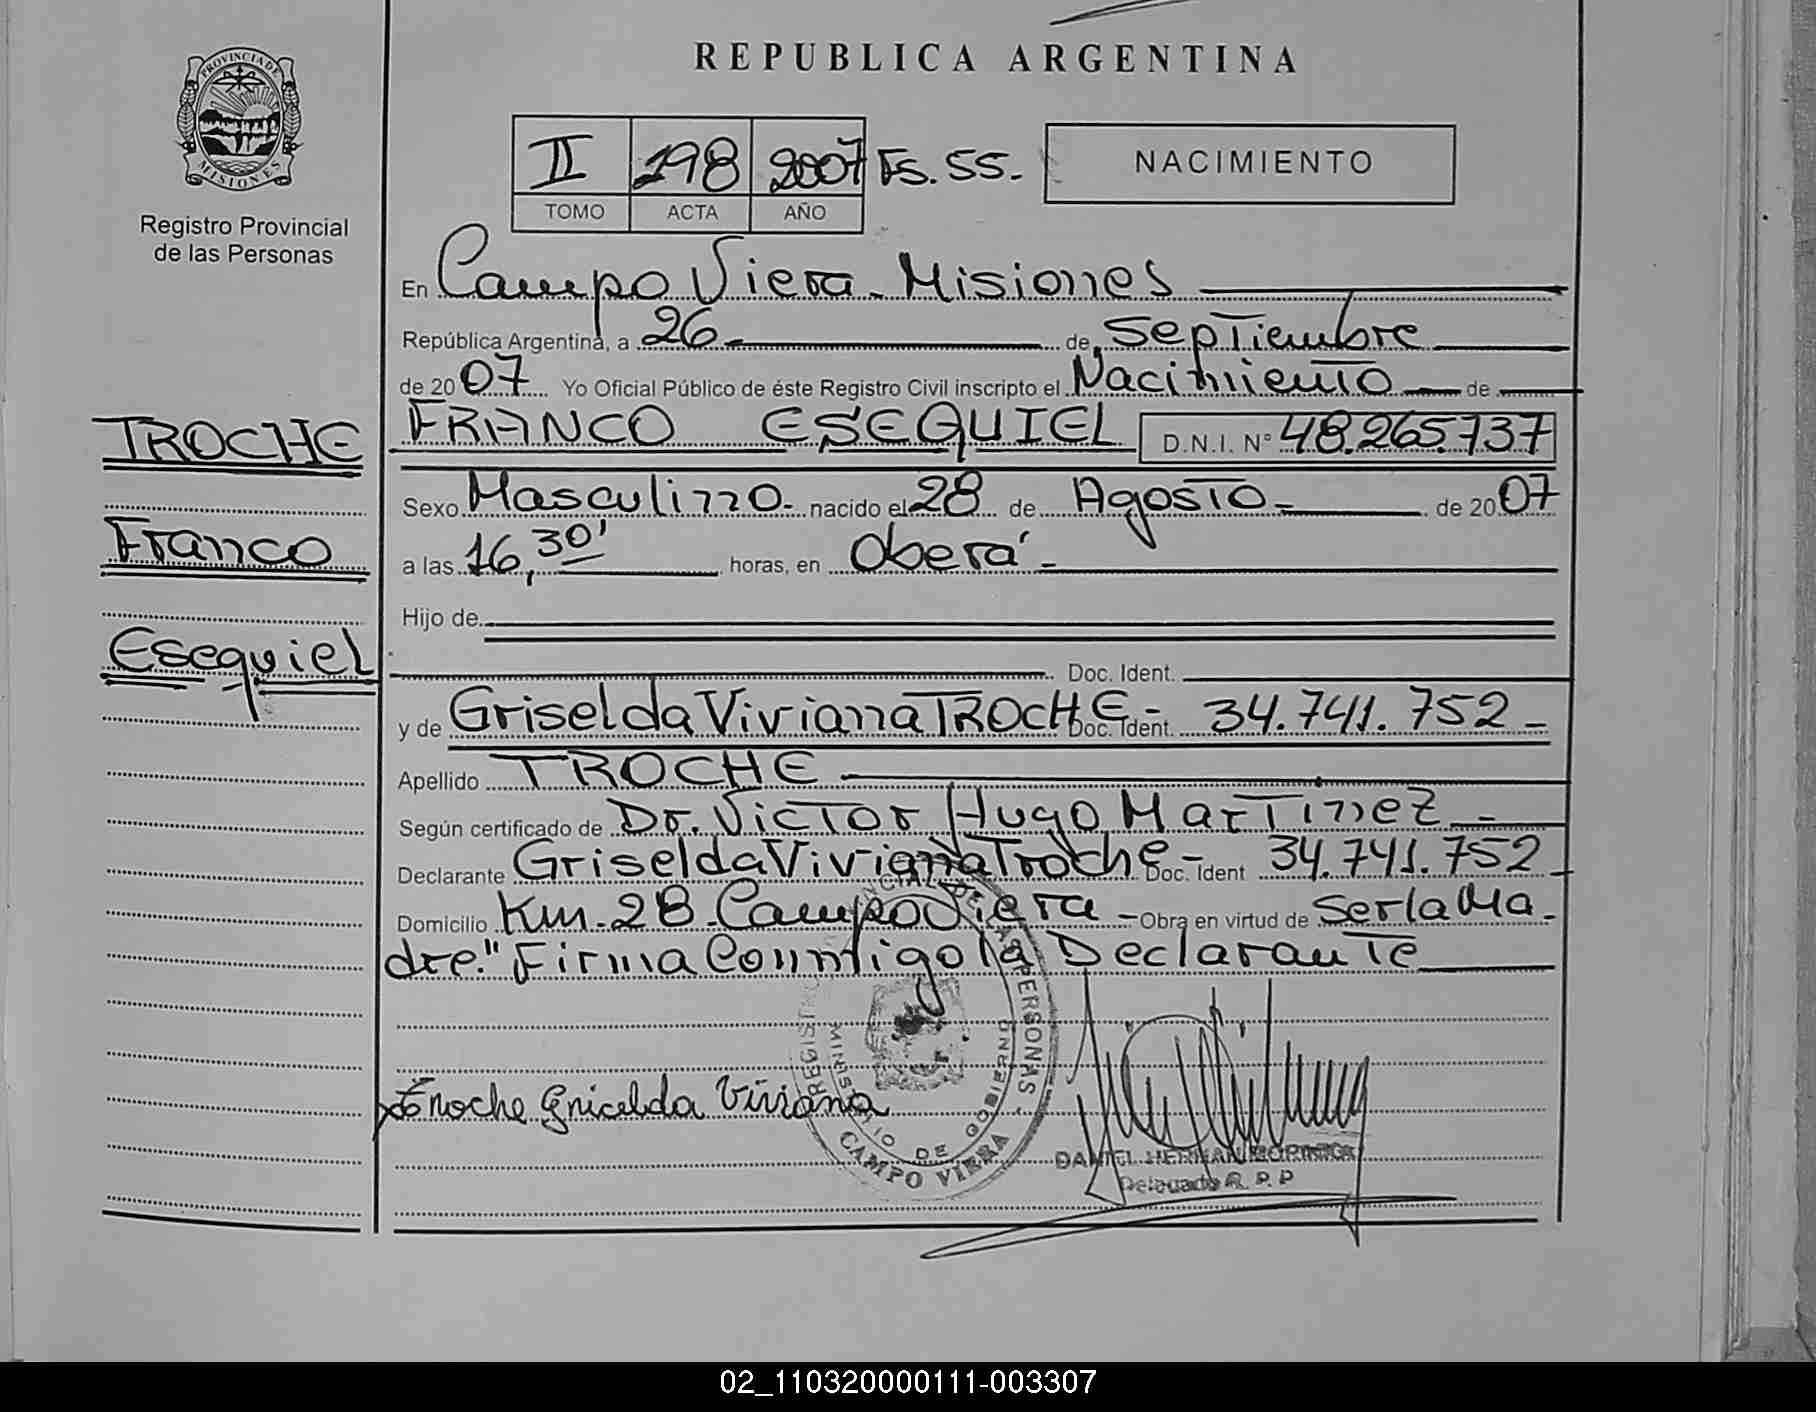 REPUBLICA ARGENTINA
PROVINCIA DE
MISIONES
Registro Provincial
de las Personas
II 198 2007 Fs. 55.
TOMO ACTA AÑO
NACIMIENTO
En Campo Viera - Misiones
República Argentina, a 26 - de Septiembre
de 2007 Yo Oficial Público de éste Registro Civil inscripto el Nacimiento de
TROCHE
FRANCO ESEQUIEL D.N.I. N° 48.265.737
Sexo Masculino - nacido el 28 de Agosto - de 2007
Franco
a las 16,30' horas, en Oberá -
Hijo de
Esequiel
Doc. Ident.
y de Griselda Viviana TROCHE - Doc. Ident. 34.741.752 -
Apellido TROCHE
Según certificado de Dr. Victor Hugo Martinez -
Declarante Griselda Viviana Troche - Doc. Ident 34.741.752
Domicilio Km. 28 Campo Viera - Obra en virtud de Ser la Ma-
dre." Firma Conmigo la Declarante
Troche Gricelda Viviana
REGISTRO PROVINCIAL DE LAS PERSONAS -
MINISTERIO DE GOBIERNO
CAMPO VIERA
DANIEL HERNAN
Delegado R. P. P
02_110320000111-003307